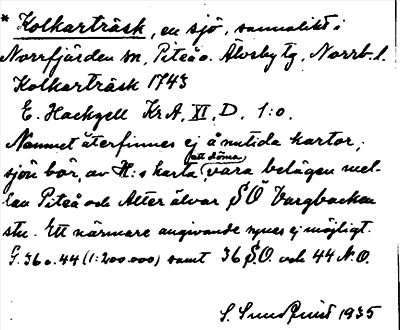 * Kolkarträsk, en sjö, sannolikt i
Norrfjärden sn, Piteå o. Älvsby tg, Norrb. l.
Kolkarträsk 1743
E. Hackzell KrA, XI, D, 1:o.
Namnet återfinnes ej å nutida kartor;
sjön bör, av H:s karta att döma, vara belägen mel-
lan Piteå och Alter älvar SÖ Vargbacken
stn. Ett närmare angivande synes ej möjligt.
G. 36 o. 44 (1:200.000) samt 36 S.O. och 44 N.O.
S. Sundquist 1935